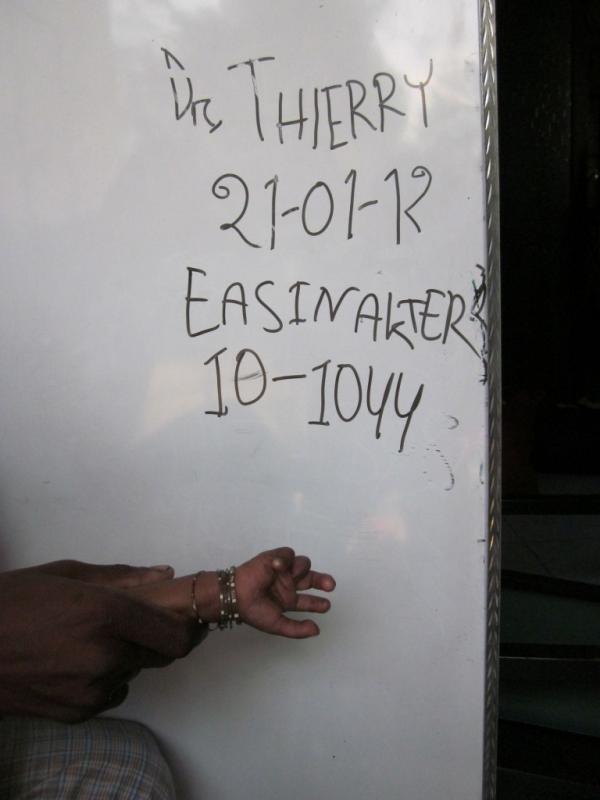 Dr, THIERRY
21-01-12
EASIN AKTER
10-1044